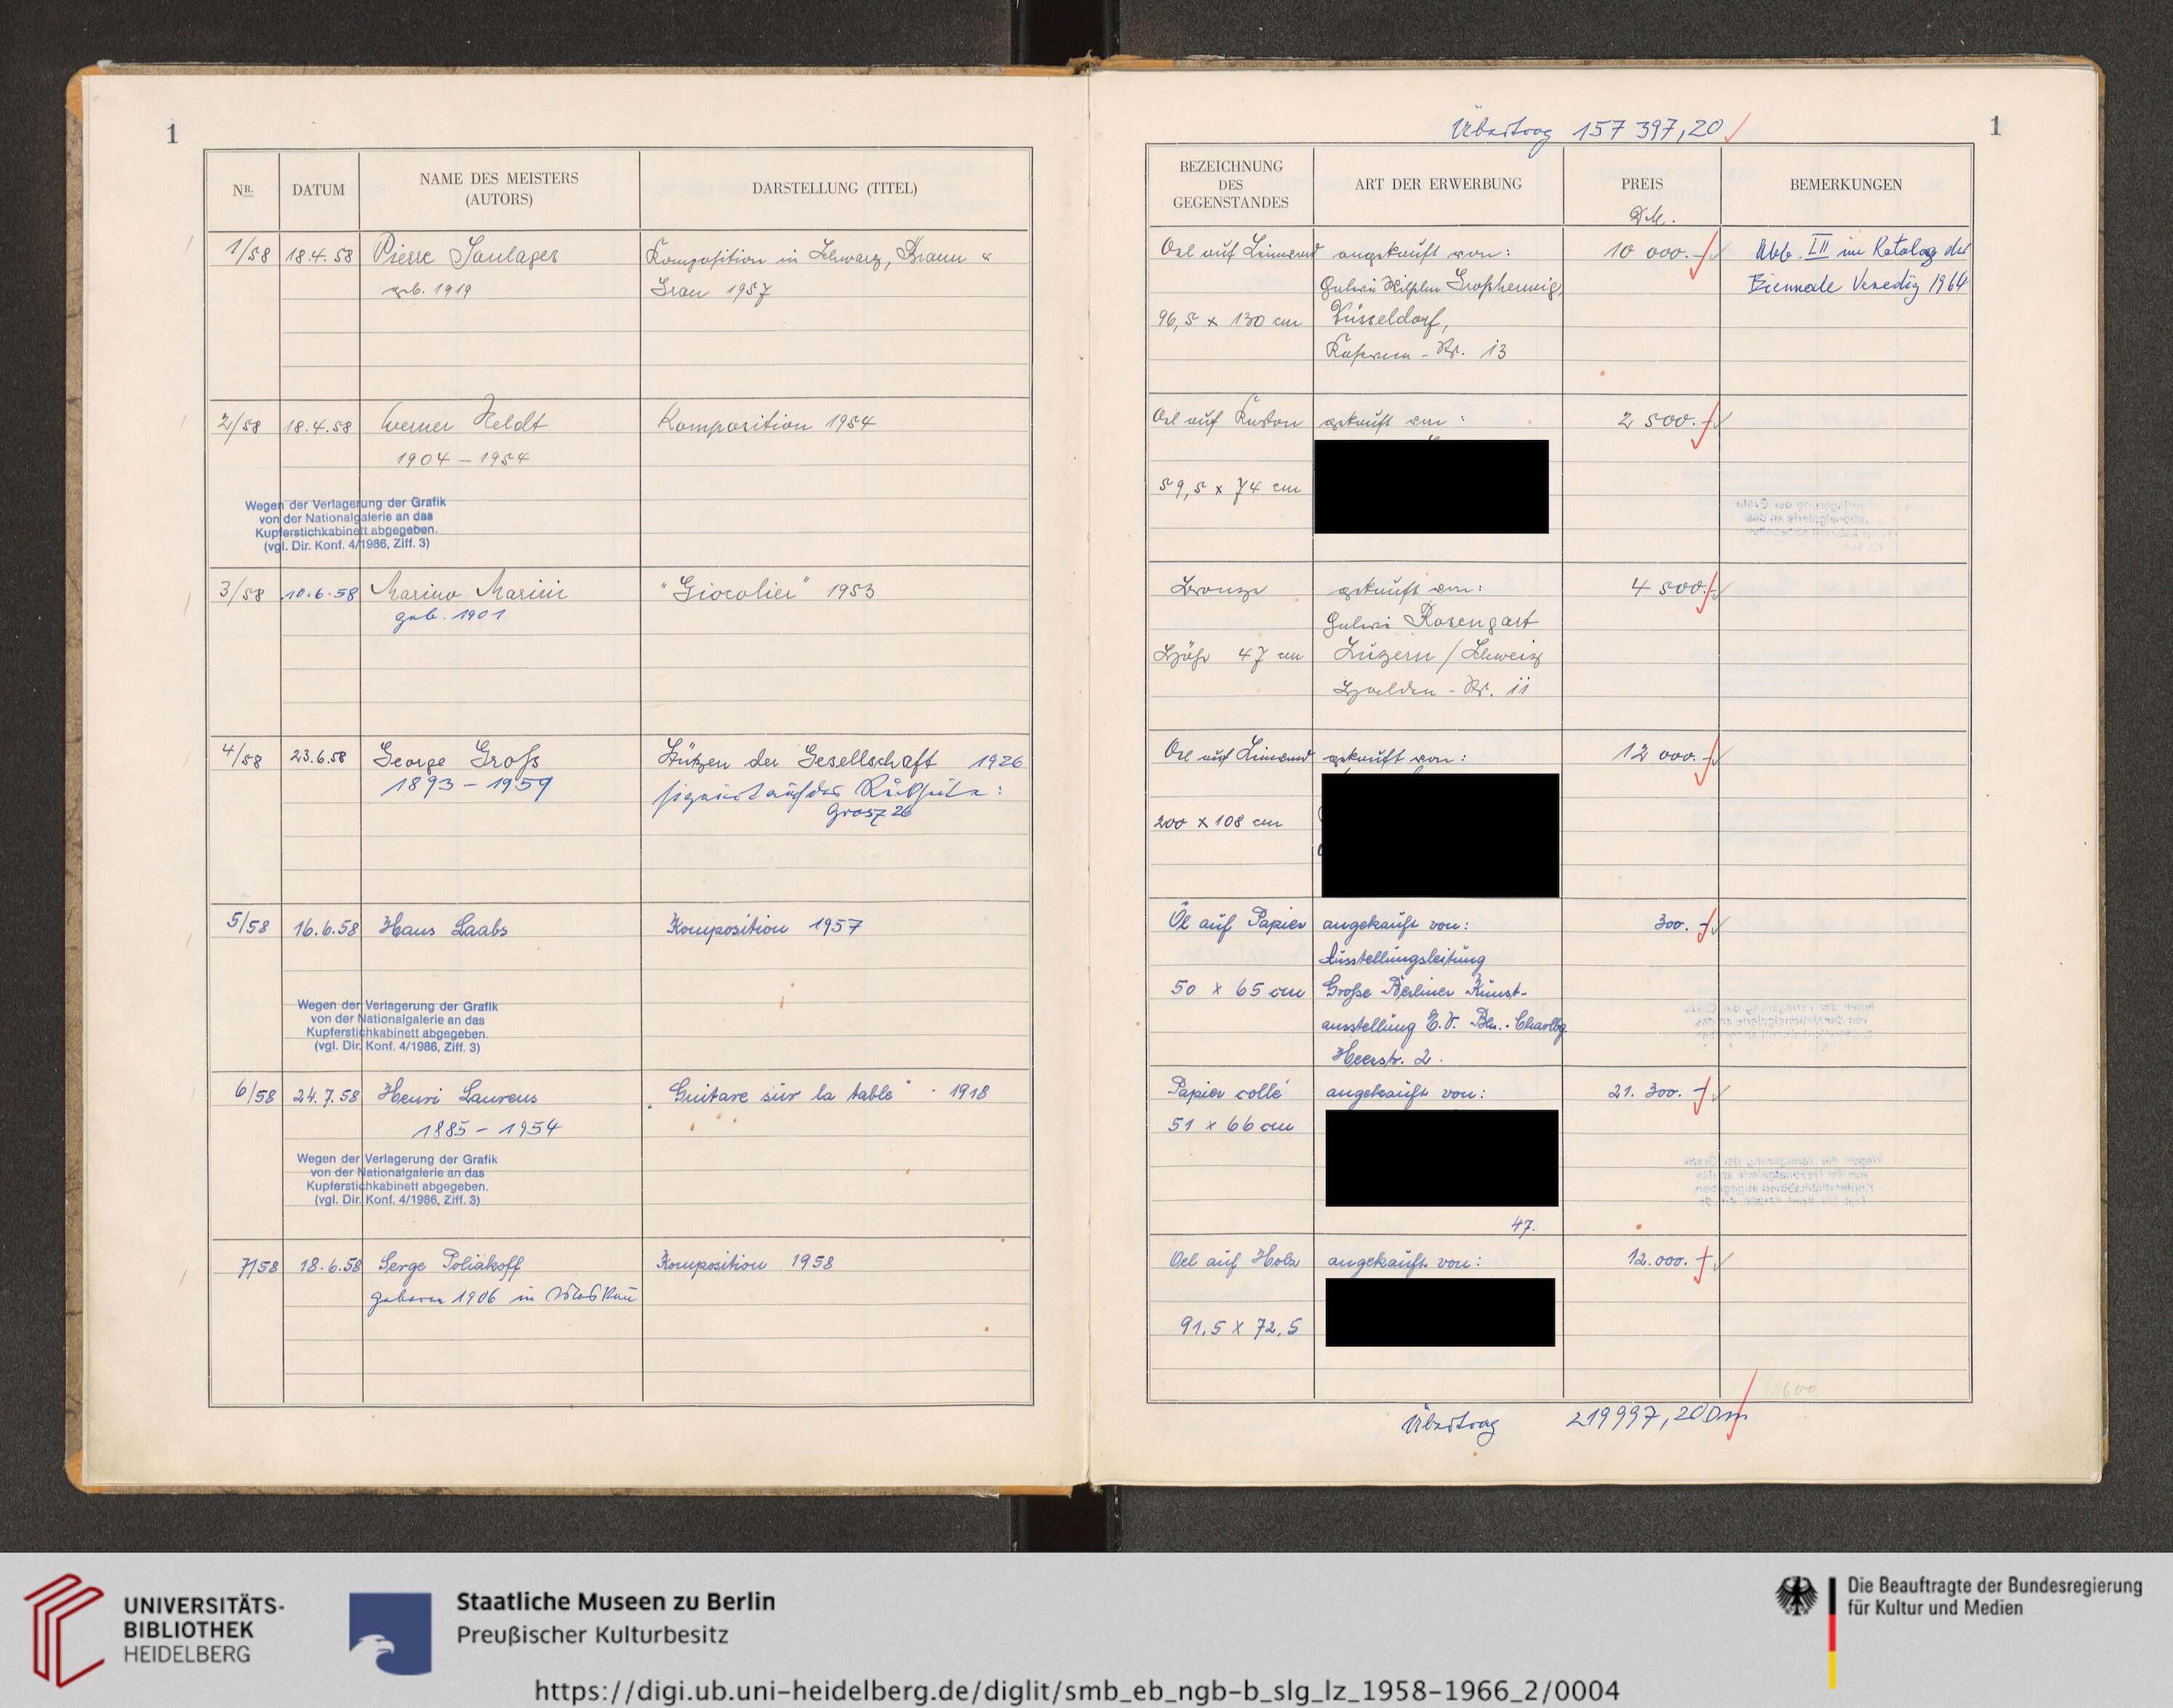 1
NR.
DATUM
NAME DES MEISTERS
(AUTORS)
DARSTELLUNG (TITEL)
1/58 18.4.58 Pierre Soulages Komposition in Schwarz, Braun &
geb. 1919 Grau 1957
2/58 18.4.58 Werner Heldt Komposition 1954
1904 – 1954
Wegen der Verlagerung der Grafik
von der Nationalgalerie an das
Kupferstichkabinett abgegeben.
(vgl. Dir. Konf. 4/1986, Ziff. 3)
3/58 10.6.58 Marino Marini "Giocolier" 1953
geb. 1901
4/58 23.6.58 George Groß Stützen der Gesellschaft 1926
1893 – 1959 signiert auf der Rückseite:
Grosz 26
5/58 16.6.58 Hans Laabs Komposition 1957
Wegen der Verlagerung der Grafik
von der Nationalgalerie an das
Kupferstichkabinett abgegeben.
(vgl. Dir. Konf. 4/1986, Ziff. 3)
6/58 24.7.58 Henri Laurens „Guitare sur la table" 1918
1885 – 1954
Wegen der Verlagerung der Grafik
von der Nationalgalerie an das
Kupferstichkabinett abgegeben.
(vgl. Dir. Konf. 4/1986, Ziff. 3)
7/58 18.6.58 Serge Poliakoff Komposition 1958
geboren 1906 in Moskau
Übertrag 157 397,20
1
BEZEICHNUNG
DES
GEGENSTANDES
ART DER ERWERBUNG
PREIS
DM.
BEMERKUNGEN
Oel auf Leinwand angekauft von: 10 000.- Abb. III im Katalog der
Galerie Wilhelm Großhennig, Biennale Venedig 1964
96,5 x 130 cm Düsseldorf,
Kasernen-Str. 13
Oel auf Karton gekauft von: 2 500.-
59,5 x 74 cm
Bronze gekauft von: 4 500.-
Galerie Rosengart
Höhe 47 cm Luzern / Schweiz
Halden-Str. 11
Oel auf Leinwand gekauft von: 12 000.-
200 x 108 cm
Öl auf Papier angekauft von: 300.-
Ausstellungsleitung
50 x 65 cm Große Berliner Kunst-
ausstellung E.V. Bln.-Charlbg.
Heerstr. 2.
Papier collé angekauft von: 21. 300.-
51 x 66 cm
47.
Oel auf Holz angekauft von: 12.000.-
91,5 x 72,5
Übertrag 219997,20 Dm
UNIVERSITÄTS-
BIBLIOTHEK
HEIDELBERG
Staatliche Museen zu Berlin
Preußischer Kulturbesitz
Die Beauftragte der Bundesregierung
für Kultur und Medien
https://digi.ub.uni-heidelberg.de/diglit/smb_eb_ngb-b_slg_lz_1958-1966_2/0004